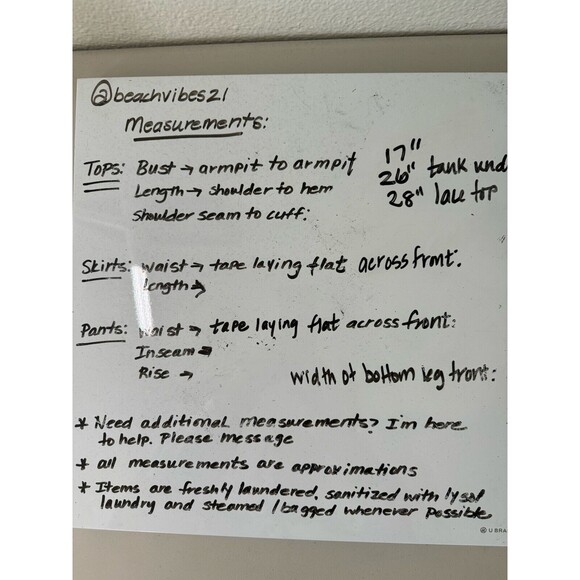 @beachvibes21
Measurements:
Tops: Bust → armpit to armpit 17"
Length → shoulder to hem 26" tank und
Shoulder seam to cuff: 28" lace top
Skirts: waist → tape laying flat across front:
Length →
Pants: waist → tape laying flat across front:
Inseam →
Rise → width of bottom leg front:
* Need additional measurements? I'm here
to help. Please message
* all measurements are approximations
* Items are freshly laundered, sanitized with lysol
laundry and steamed / bagged whenever possible
U BRA